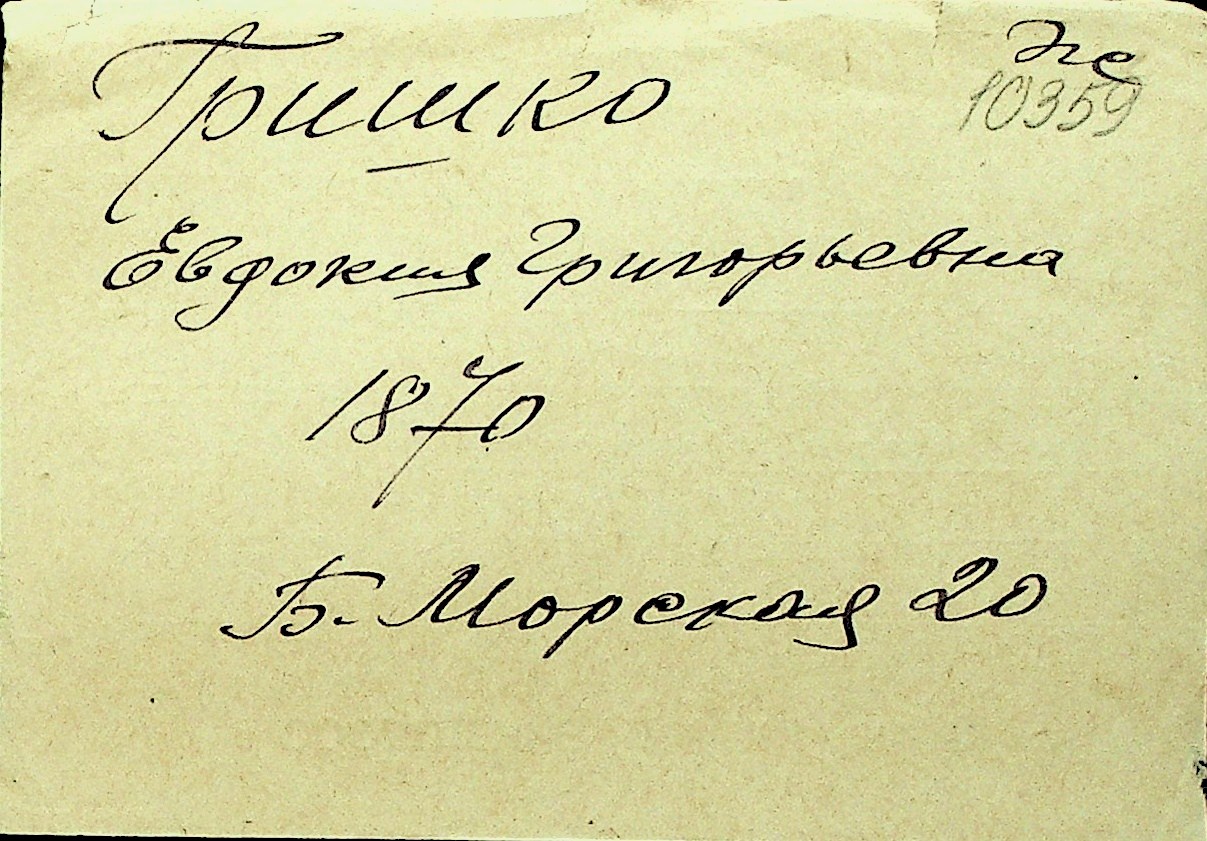 Гришко
10359
Евдокия Григорьевна
1870
Б. Морская 20